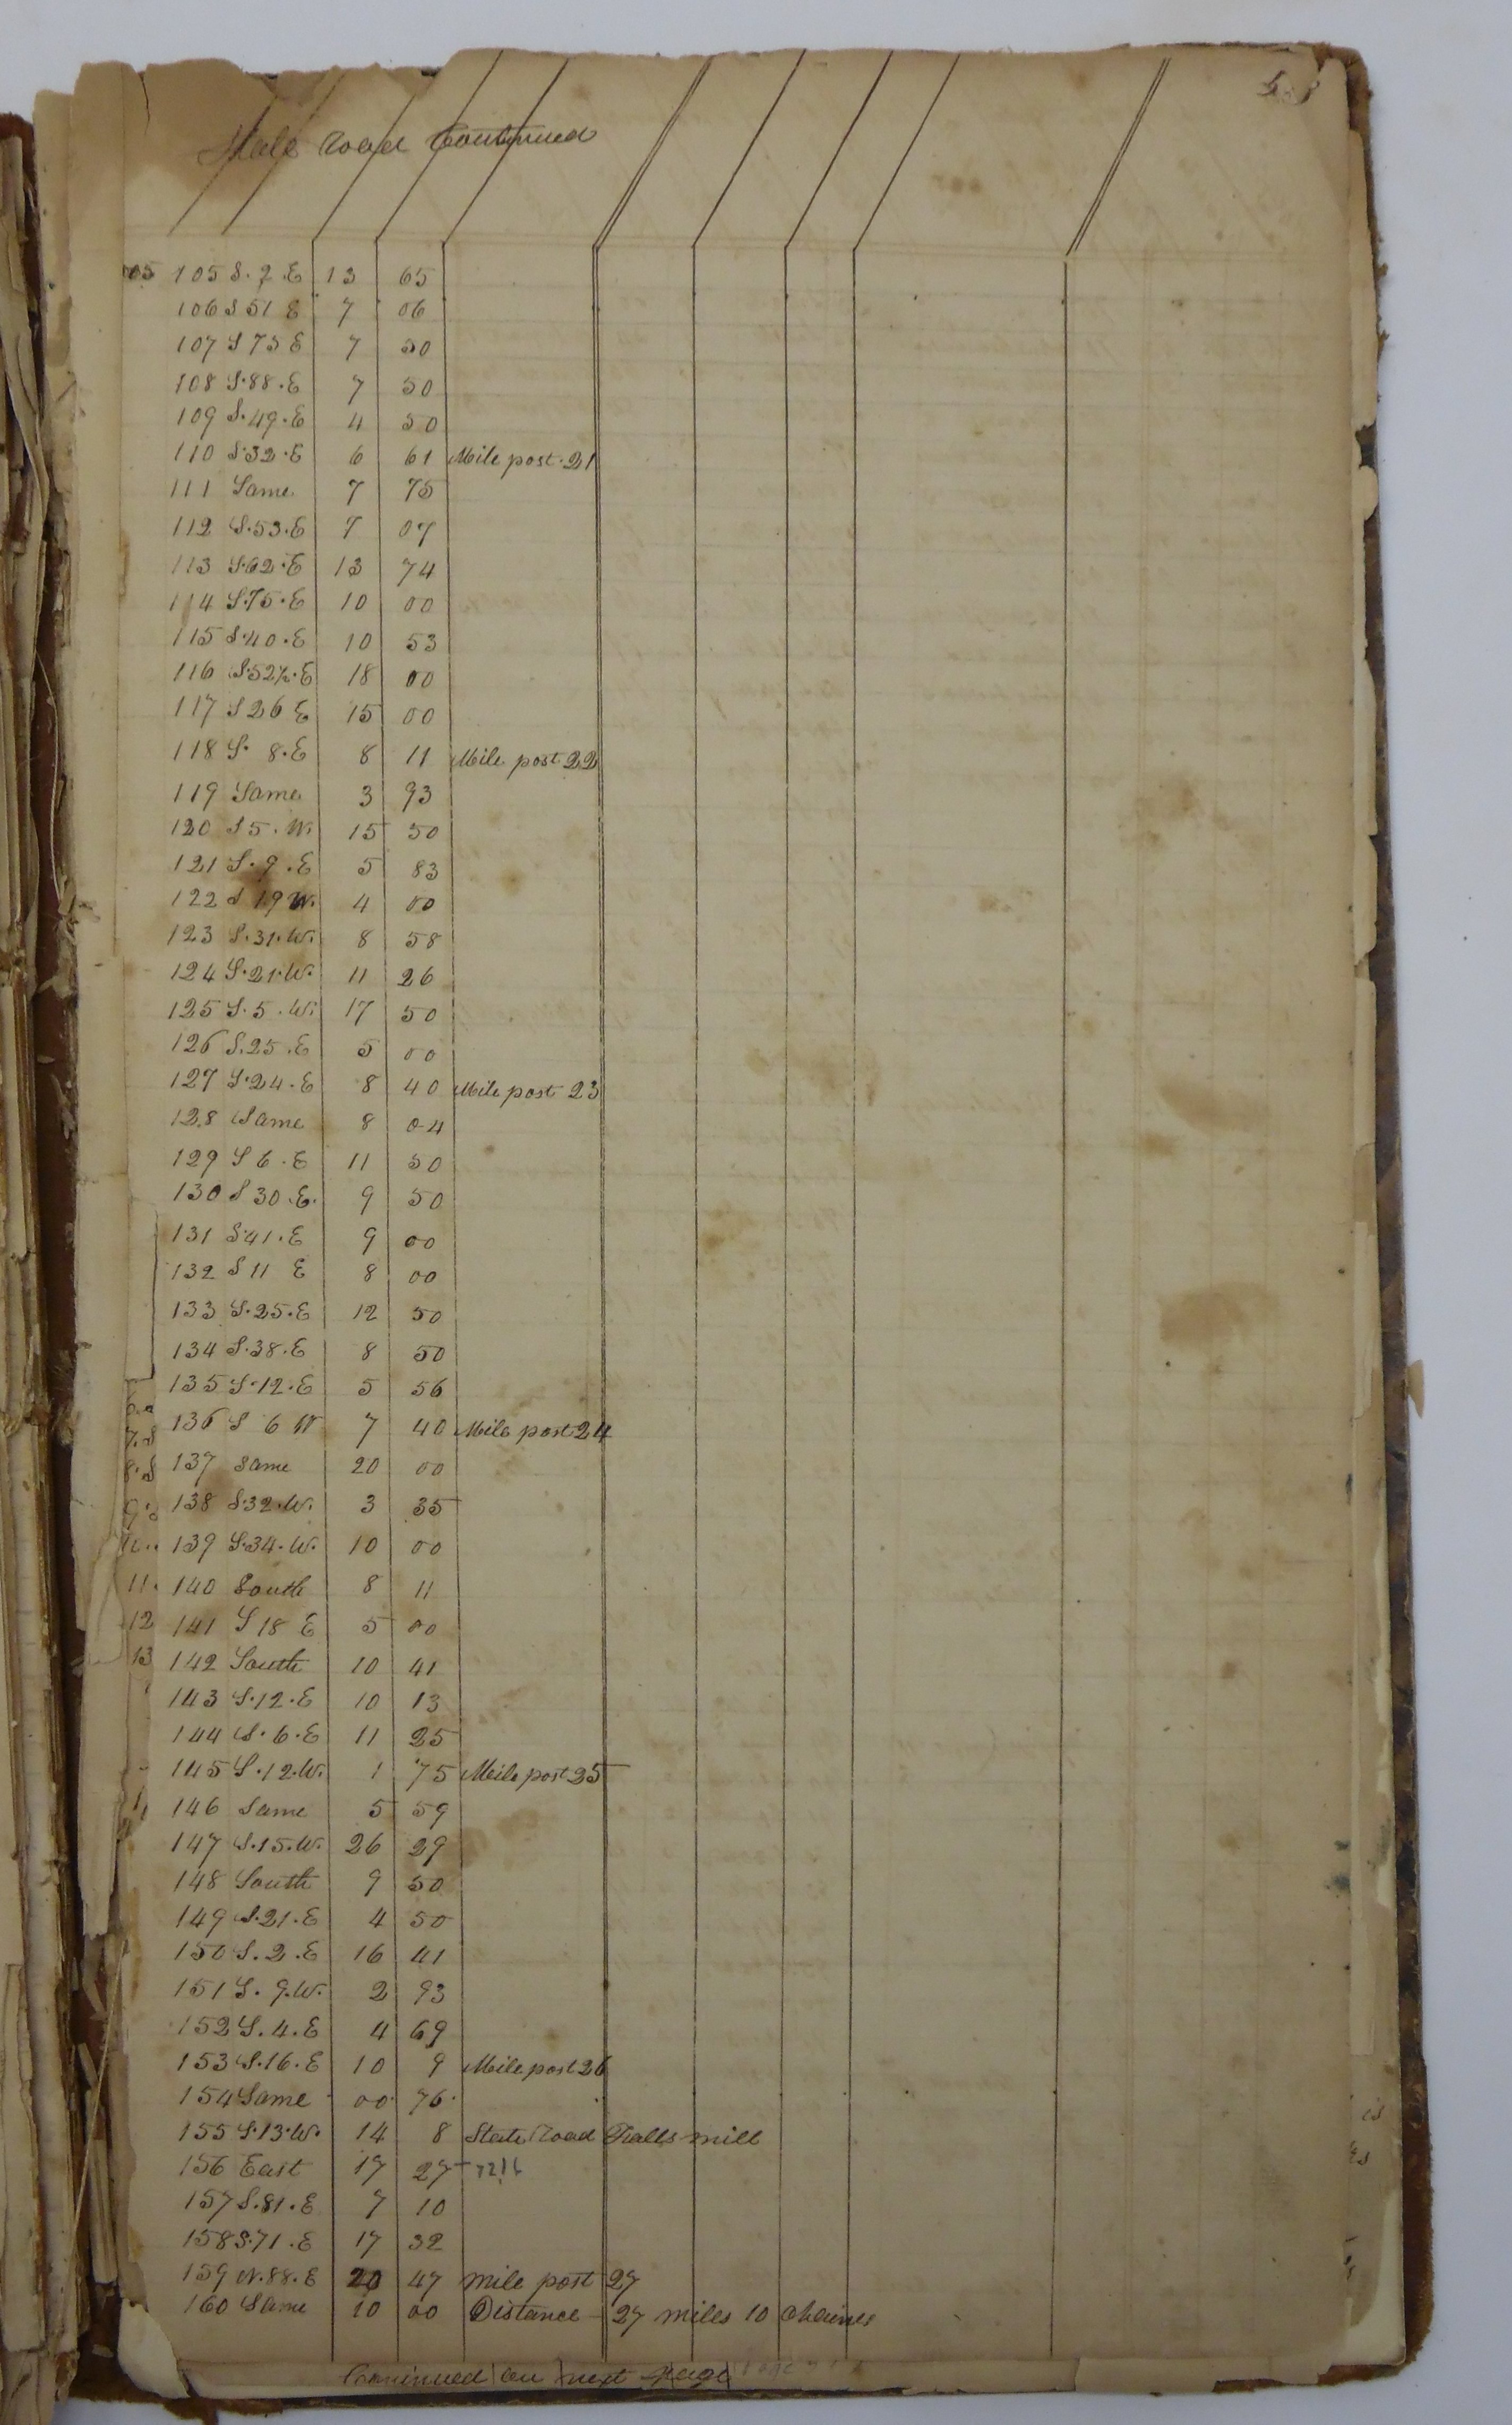 State Road Continued
105 105 S. 2 .E 13 65
106 S 51 E 7 06
107 S 75 E 7 50
108 S. 88. E 7 50
109 S. 49. E 4 50
110 S. 32. E 6 61 Mile post 21
111 Same 7 75
112 S. 53. E 7 07
113 S. 62. E 13 74
114 S. 75. E 10 00
115 S. 40. E 10 53
116 S. 52½. E 18 00
117 S 26 E 15 00
118 S. 8. E 8 11 Mile post 22
119 Same 3 93
120 S 5. W. 15 50
121 S. 9. E 5 83
122 S 19 W. 4 00
123 S. 31. W. 8 58
124 S. 21. W. 11 26
125 S. 5. W. 17 50
126 S. 25. E 5 00
127 S. 24. E 8 40 Mile post 23
128 Same 8 04
129 S 6. E 11 50
130 S 30. E. 9 50
131 S. 41. E 9 00
132 S 11 E 8 00
133 S. 25. E 12 50
134 S. 38. E 8 50
135 S. 12. E 5 56
136 S 6 W 7 40 Mile post 24
137 Same 20 00
138 S. 32. W. 3 35
139 S. 34. W. 10 00
11. 140 South 8 11
12 141 S 18 E 5 00
13 142 South 10 41
143 S. 12. E 10 13
144 S. 6. E 11 25
145 S. 12. W. 1 75 Mile post 25
146 Same 5 59
147 S. 15. W. 26 29
148 South 9 50
149 S. 21. E 4 50
150 S. 2. E 16 41
151 S. 9. W. 2 93
152 S. 4. E 4 69
153 S. 16. E 10 9 Mile post 26
154 Same 00 76
155 S. 13. W. 14 8 State Road Falls mill
156 East 17 27
157 S. 81. E 7 10
158 S. 71. E 17 32
159 N. 88. E 20 47 mile post 27
160 Same 10 00 Distance 27 miles 10 Chains
Continued on next page